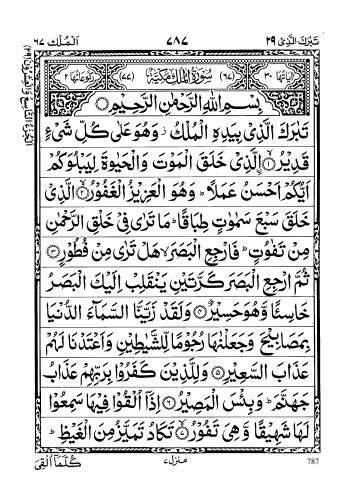 تَبٰرَكَ الَّذِىْ ٢٩ ٧٨٧ اَلْمُلْك ٦٧
اٰيَاتُهَا ٣٠ (٦٧) سُوْرَةُ الْمُلْكِ مَكِّيَّةٌ (٧٧) رُكُوْعَاتُهَا ٢
بِسْمِ اللّٰهِ الرَّحْمٰنِ الرَّحِيْمِ
تَبٰرَكَ الَّذِىْ بِيَدِهِ الْمُلْكُ ز وَهُوَ عَلٰى كُلِّ شَىْءٍ
قَدِيْرُ ۙ﴿١﴾ الَّذِىْ خَلَقَ الْمَوْتَ وَالْحَيٰوةَ لِيَبْلُوَكُمْ
اَيُّكُمْ اَحْسَنُ عَمَلًا ؕ وَهُوَ الْعَزِيْزُ الْغَفُوْرُ ۙ﴿٢﴾ الَّذِىْ
خَلَقَ سَبْعَ سَمٰوٰتٍ طِبَاقًا ؕ مَا تَرٰى فِىْ خَلْقِ الرَّحْمٰنِ
مِنْ تَفٰوُتٍ ؕ فَارْجِعِ الْبَصَرَ ۙ هَلْ تَرٰى مِنْ فُطُوْرٍ ﴿٣﴾
ثُمَّ ارْجِعِ الْبَصَرَ كَرَّتَيْنِ يَنْقَلِبْ اِلَيْكَ الْبَصَرُ
خَاسِئًا وَّهُوَ حَسِيْرٌ ﴿٤﴾ وَلَقَدْ زَيَّنَّا السَّمَآءَ الدُّنْيَا
بِمَصَابِيْحَ وَجَعَلْنٰهَا رُجُوْمًا لِّلشَّيٰطِيْنِ وَاَعْتَدْنَا لَهُمْ
عَذَابَ السَّعِيْرِ ﴿٥﴾ وَلِلَّذِيْنَ كَفَرُوْا بِرَبِّهِمْ عَذَابُ
جَهَنَّمَ ؕ وَبِئْسَ الْمَصِيْرُ ﴿٦﴾ اِذَاۤ اُلْقُوْا فِيْهَا سَمِعُوْا
لَهَا شَهِيْقًا وَّهِىَ تَفُوْرُ ۙ﴿٧﴾ تَكَادُ تَمَيَّزُ مِنَ الْغَيْظِ ؕ
كُلَّمَاۤ اُلْقِىَ منزل ٧ 787